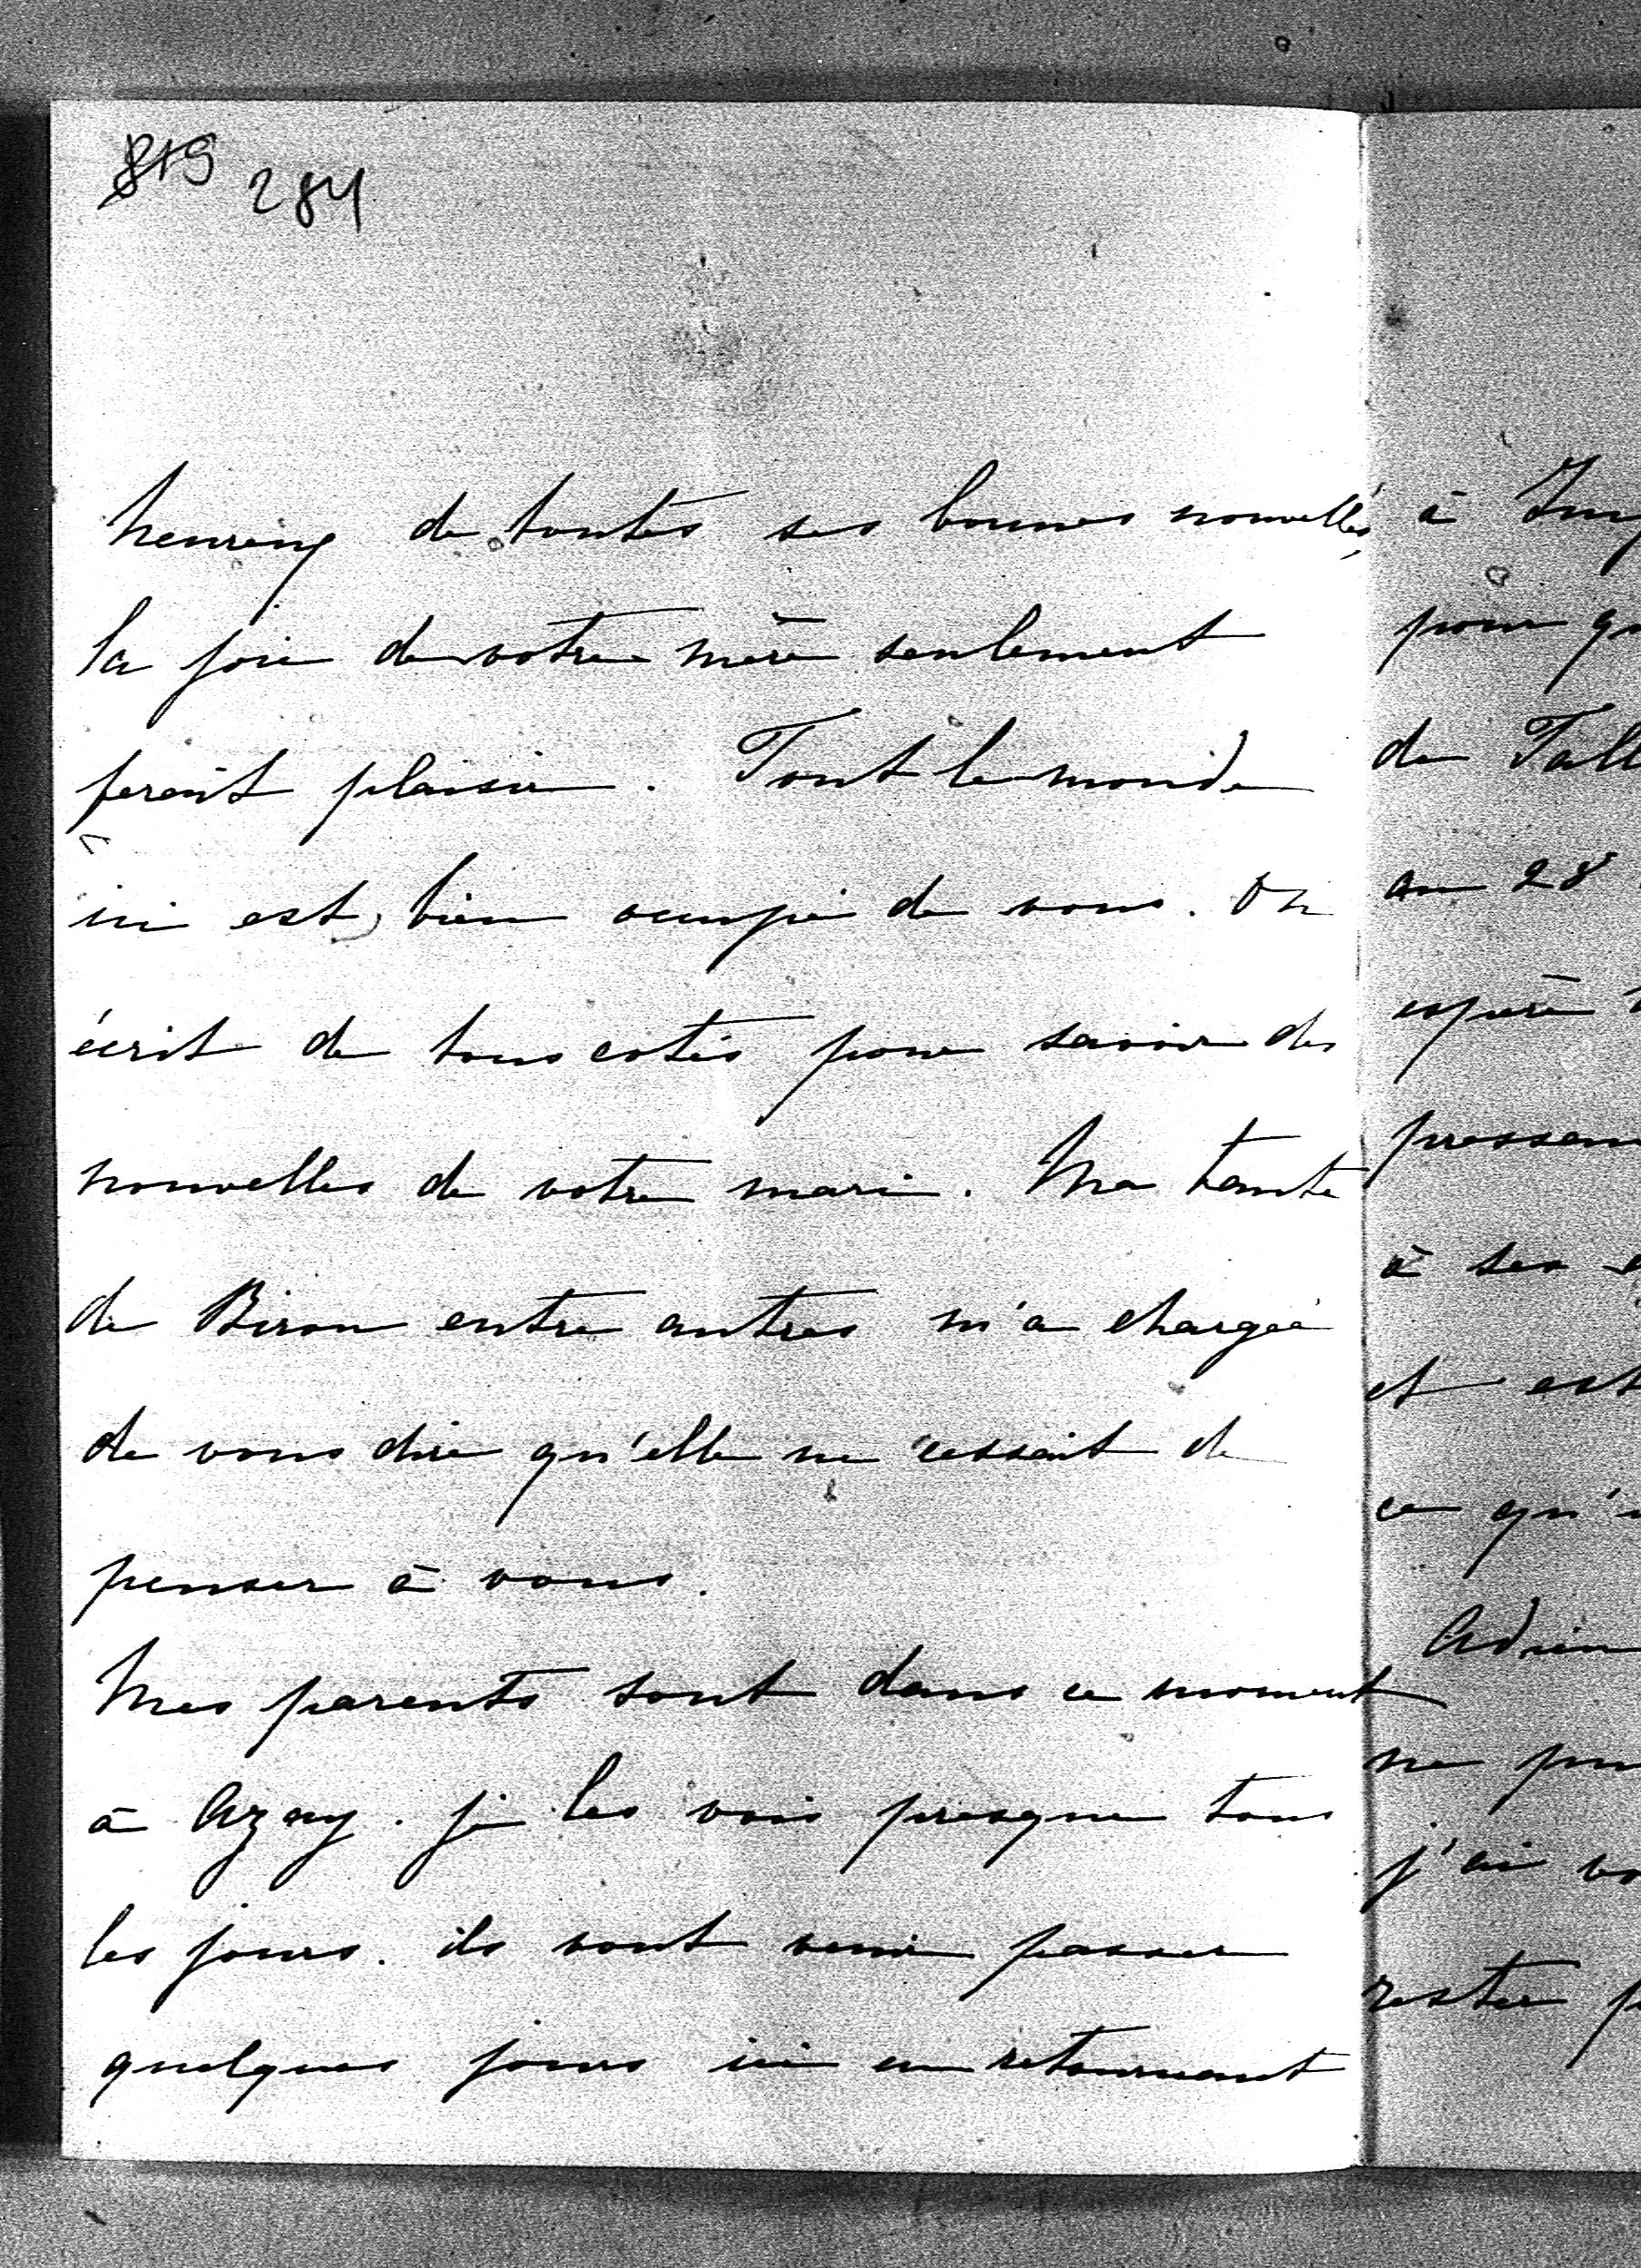 819 284
heureux de toutes ses bonnes nouvelles,
la joie de votre mère seulement
feroit plaisir. Tout le monde
ici est bien occupé de vous. On
écrit de tous cotés pour savoir des
nouvelles de votre mari. Ma tante
de Biron entre autres m'a chargée
de vous dire qu'elle ne cessait de
penser à vous.
Mes parents sont dans ce moment
à Azay. je les vois presque tous
les jours. ils vont venir passer
quelques jours ici en retournant
à
pour
de Tall
au 28
espère
à ses
et est
ce qu'
Adrien
ne
j'ai
rester